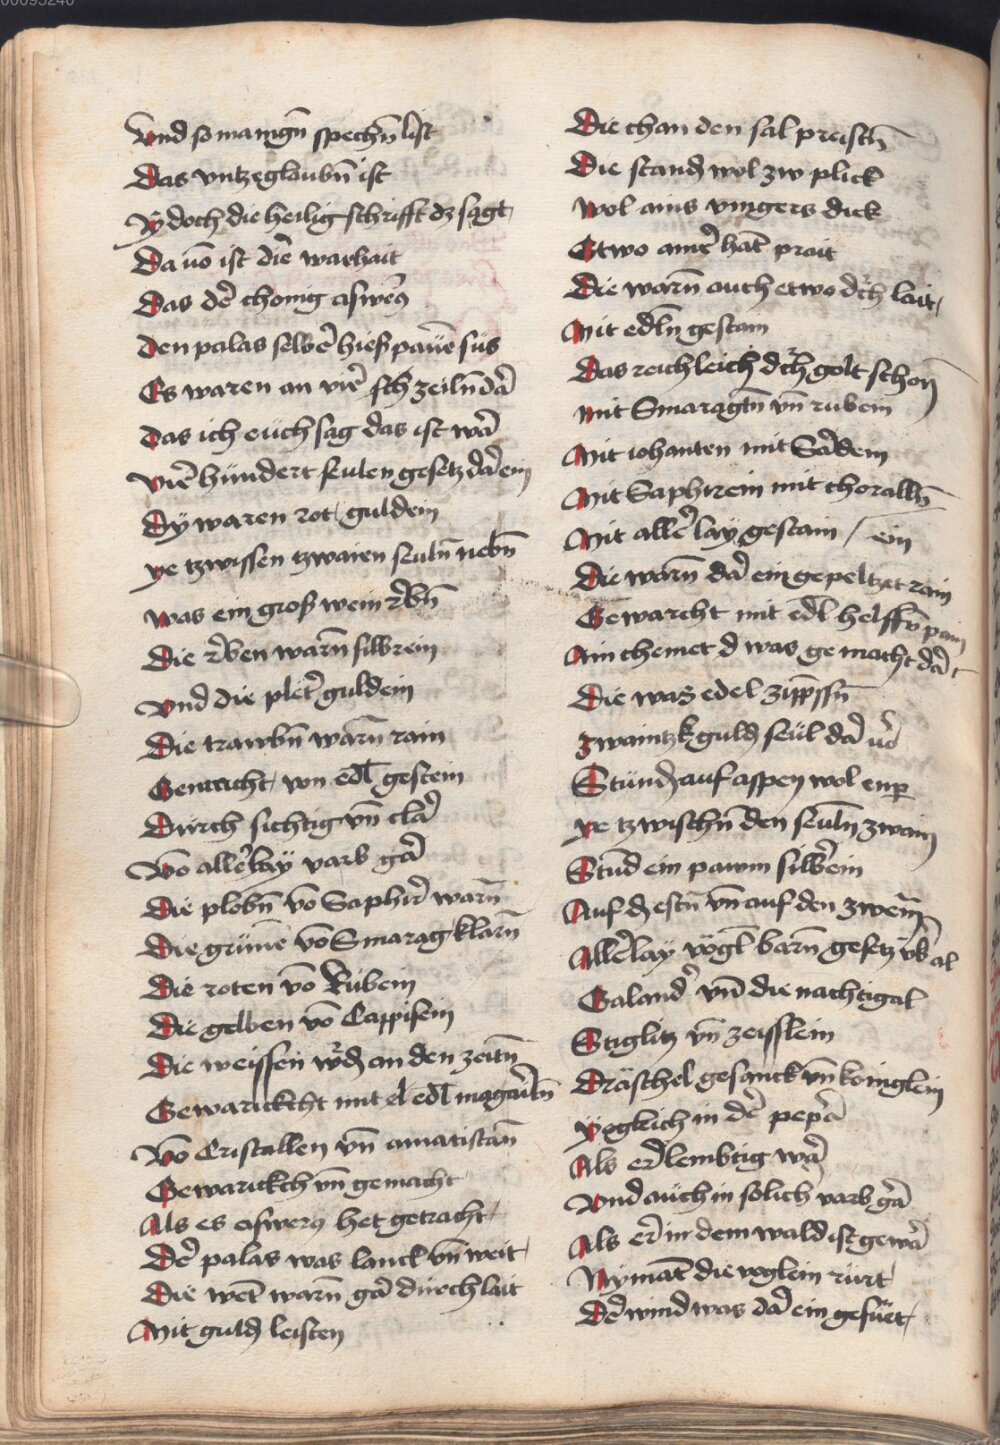 00095240
Vnd so manign̄ spechn̄ list
Das vntzeglaubn̄ ist
Ydoch die heilig schrifft dz sagt
Da uō ist die warhait
Das der̄ chonig asweꝰ
Den palas selber̄ hiesß pawēn sus
Es waren an vier̄ sch zeiln̄ dar̄
Das ich euch sag das ist war̄
Vier̄ hundert seulen gesetz dar̄ein
Dy waren rot guldein
ye tzwissen tzwaien seuln̄ nebn̄
was ein groß wein rebn̄
Die reben warn̄ silbrein
Vnd die pleter̄ guldein
Die trawbn̄ warn̄ rain
von edl̄ gestein
Durch sichtig vn̄ clar̄
Vō aller̄lay varb gar̄
Die plobn̄ vō Saphir̄ warn̄
Die grüne vō Smarag klarn̄
Die roten vō Rubein
Die gelben vō Cappisein
Die weissen an den zeitn̄
Gewarickcht mit edl̄
Vō Cristallen vn̄ amatistan̄
Gewarickch vn̄ gemacht
Als es asweꝰ het getracht
Der̄ palas was lanck vn̄ weit
Die went warn̄ gar̄ durch lait
Mit guld leisten
Die chan den sal preisen̄
Die stand wol zw plick
Wol ains vingers dick
Etwo ainer̄ hant prait
Die warn̄ auch etwo dch̄ lait
Mit edln̄ gestain
Das reichleich dch̄ golt schon
mit Smaragtn̄ vn̄ rubein
Mit iohanten mit Sardein
Mit Saphirein mit choralln̄
Mit aller̄ lay gestain / ein
Die warn̄ dar̄ ein gepeltzet rain
Gewarcht mit edl helffn̄ pain
Ain chemet d was gemacht dar̄
Die was edel
zwaintzk guld seul dar̄
Stund auf aspen wol enp
ye tzwischn̄ den seuln̄ zwain
Stund ein pawm silber̄ein
Auf d estn̄ vn̄ auf den zwein̄
Aller̄lay vögl̄ warn̄ gesetz vb̄ al
Galander̄ vnd die nachtigal
Stiglitz vn̄ zeisslein
Dräschel gesanck vn̄ koniglein
Yegleich in der̄ peper̄
Als er̄ lembtig war̄
Vnd auch in solich varb gar̄
Als er̄ in dem wald ist gewar̄
Nymant die voglein rürt
Der̄ wind was dar̄ ein gefuert